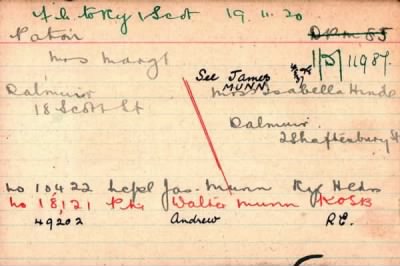 f.l. to Ry 1 Scot 19.11.20
Paton DRM 85
1/D/11987.
Mrs Margt
See James
MUNN
Mrs Isabella Hinds
Dalmuir
18 Scott St
Dalmuir
2 Shaftesbury St
No 10422 Lcpl Jas. Munn Ry Hldrs
No 18121 Pte Walter Munn KOSB
49202 Andrew R.E.